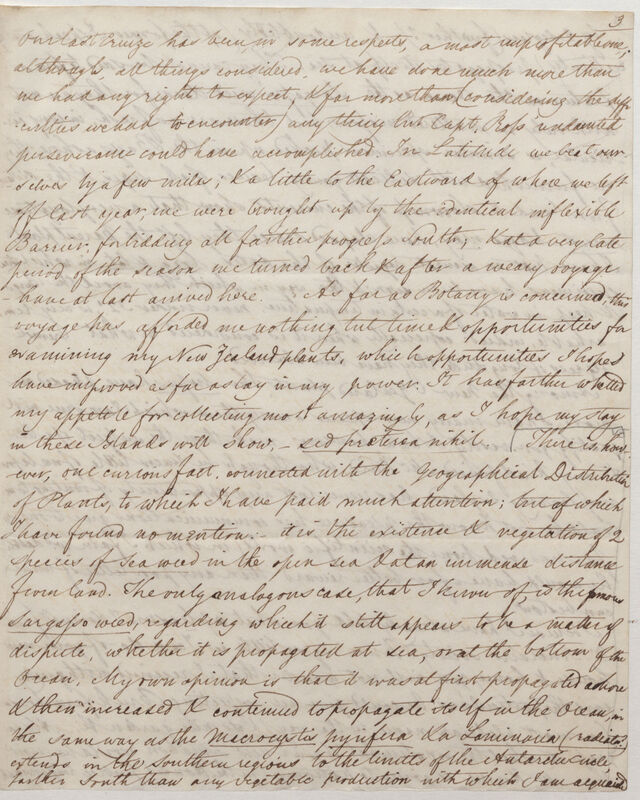 3
Our last Cruize has been in some respects, a most unprofitable one,
although, all things considered, we have done much more than
we had any right to expect, & far more than (considering the diffi
culties we had to encounter) any thing but Capt. Ross' undaunted
perseverance could have accomplished. In Latitude we beat our
selves by a few miles; & a little to the Eastward of where we left
off last year, we were brought up by the identical inflexible
Barrier, forbidding all farther progress South; & at a very late
period of the season we turned back & after a weary voyage
have at last arrived here. As far as Botany is concerned, this
voyage has afforded me nothing but time & opportunities for
examining my New Zealand plants, which opportunities I hope
have improved as far as lay in my power. It has farther whetted
my appetite for collecting most amazingly, as I hope my stay
in these Islands will show, - sed præterea nihil. (There is how-
ever, one curious fact, connected with the Geographical Distribution
of Plants, to which I have paid much attention; but of which
I have found no mention:- it is the existence & vegetation of 2
species of Sea weed in the open sea & at an immense distance
from land. The only analogous case, that I know of, is the famous
Sargasso weed, regarding which it still appears to be a matter of
dispute, whether it is propagated at sea, or at the bottom of the
Ocean. My own opinion is that it was at first propagated ashore
& then increased & continued to propagate itself in the Ocean, in
the same way as the Macrocystis pyrifera & a Laminaria (radiata)
extends in the Southern regions to the limits of the Antarctic circle,
farther South than any vegetable production with which I am acquainted